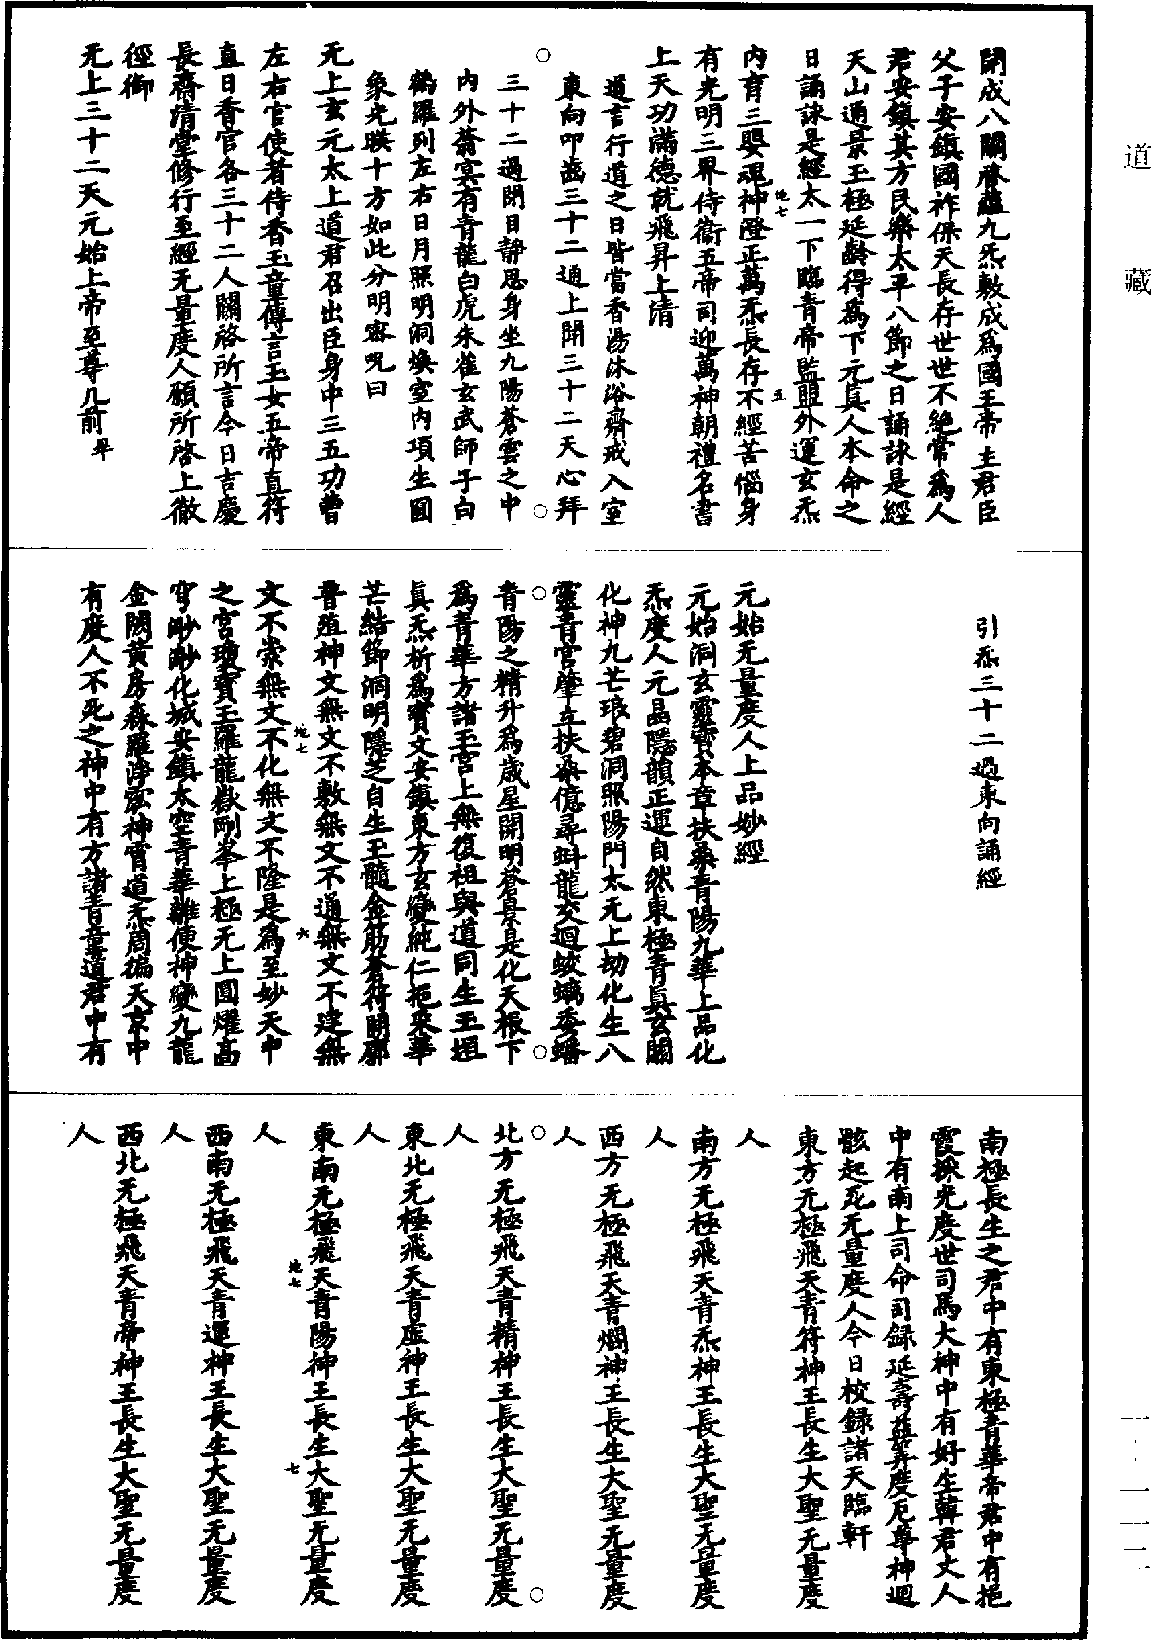 道藏
開成八關胥蘊九炁敷成爲國王帝主君臣
父子安鎮國祚保天長存世世不絕常爲人
君安鎮其方民樂太平八節之日誦詠是經
天山通景玉極延齡得爲下元眞人本命之
日誦詠是經太一下臨青帝監盟外運玄炁
內育三嬰魂神澄正萬炁長存不經苦惱身
地七 五
有光明三界侍衞五帝司迎萬神朝禮名書
上天功滿德就飛昇上清
道言行道之日皆當香湯沐浴齋戒入室
東向叩齒三十二通上聞三十二天心拜
三十二過閉目靜思身坐九陽蒼雲之中
內外蓊冥有青龍白虎朱雀玄武師子白
鶴羅列左右日月照明洞煥室內項生圓
象光暎十方如此分明密呪曰
无上玄元太上道君召出臣身中三五功曹
左右官使者侍香玉童傳言玉女五帝直符
直日香官各三十二人關啓所言今日吉慶
長齋清堂修行至經无量度人願所啓上徹
徑御
无上三十二天元始上帝至尊几前畢
引炁三十二過東向誦經
元始无量度人上品妙經
元始洞玄靈寶本章扶桑青陽九華上品化
炁度人元晶隱韻正運自然東極青眞玄關
化神九芒琅碧洞照陽門太无上劫化生八
靈青宮肇立扶桑億尋蚪龍交迴蛟螭委蟠
青陽之精升爲歲星開明蒼景是化天根下
爲青華方諸玉宮上無復祖與道同生玉堩
眞炁析爲寶文安鎮東方玄變純仁挹采華
芒結節洞明隱芝自生玉髓金筋蒼符開廓
普殖神文無文不敷無文不通無文不建無
地七 六
文不崇無文不化無文不隆是爲至妙天中
之宮瓊寶玉羅龍嶽剛峯上極无上圓燿高
穹眇眇化城安鎮太空青華離便神變九龍
金闕黃房森羅淨宏神霄道炁周徧天京中
有度人不死之神中有方諸青童道君中有
南極長生之君中有東極青華帝君中有挹
霞採光度世司馬大神中有好生韓君丈人
中有南上司命司録延壽益筭度厄尊神迴
骸起死无量度人今日校録諸天臨軒
東方无極飛天青符神王長生大聖无量度
人
南方无極飛天青炁神王長生大聖无量度
人
西方无極飛天青爛神王長生大聖无量度
人
北方无極飛天青精神王長生大聖无量度
人
東北无極飛天青虛神王長生大聖无量度
人
東南无極飛天青陽神王長生大聖无量度
地七 七
人
西南无極飛天青運神王長生大聖无量度
人
西北无極飛天青帝神王長生大聖无量度
人